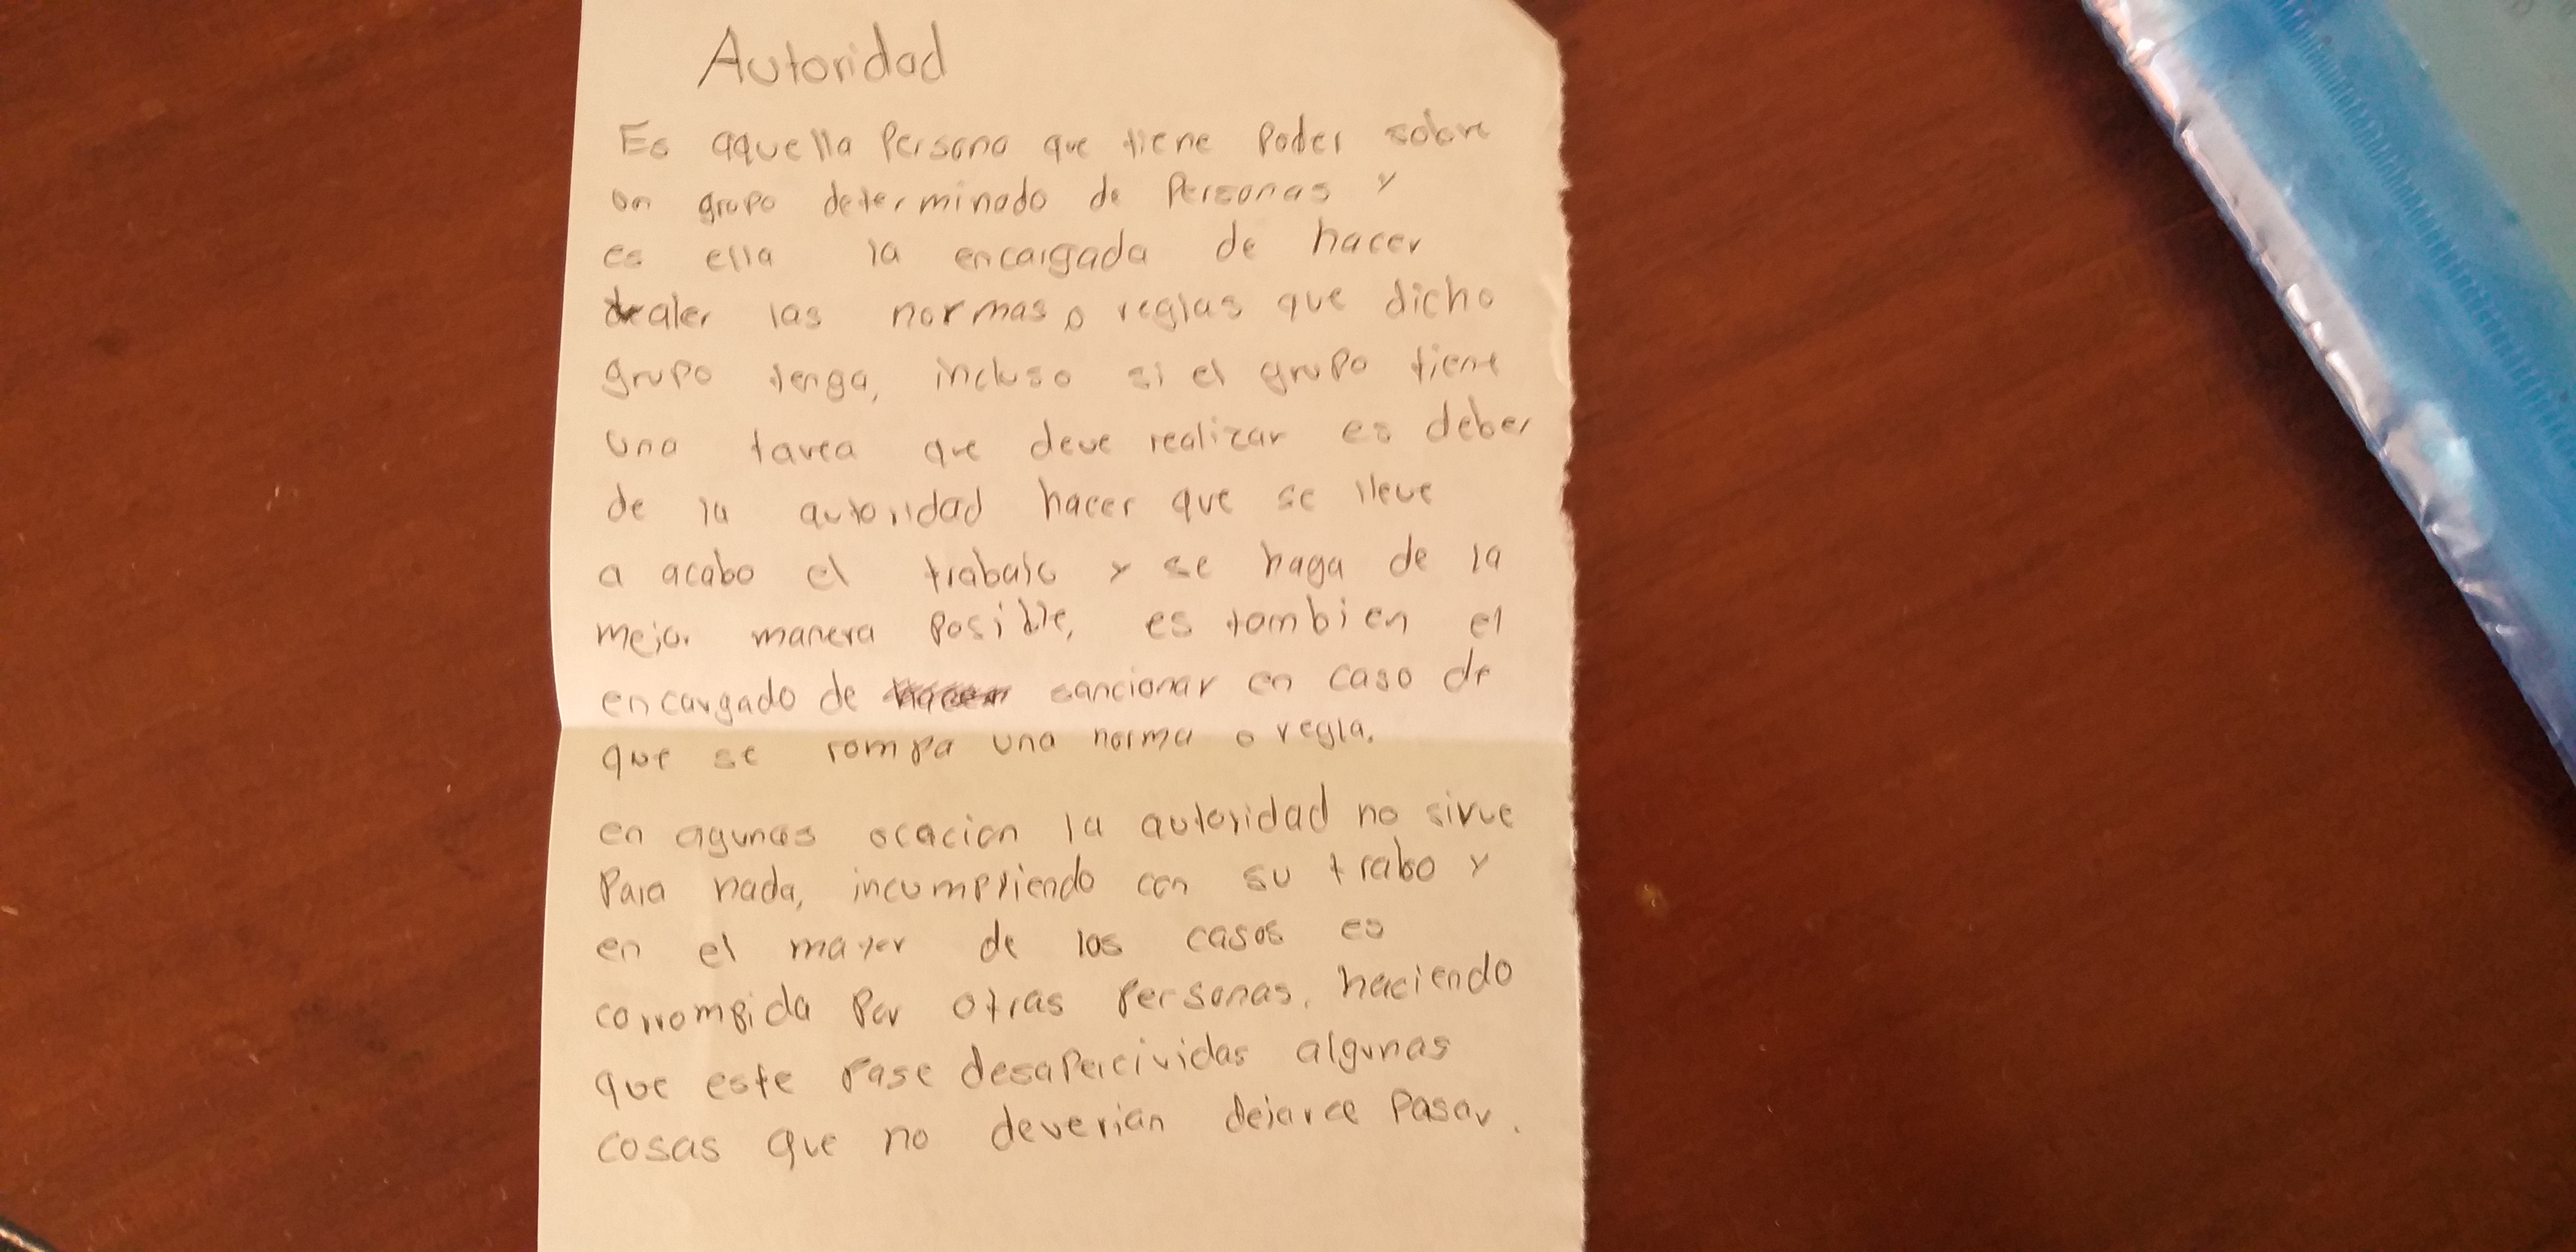 Autoridad
Es aquella Persona que tiene Poder sobre
un grupo determinado de Personas y
es ella la encargada de hacer
valer las normas o reglas que dicho
grupo tenga, incluso si el grupo tiene
una tarea que deve realizar es deber
de la autoridad hacer que se lleve
a acabo el trabajo y se haga de la
mejor manera posible, es tambien el
encargado de sancionar en caso de
que se rompa una norma o regla.
en agunas ocacion la autoridad no sirve
Para nada, incumpliendo con su trabo y
en el mayor de los casos es
corrompida Por otras Personas, haciendo
que este Pase desapercividas algunas
cosas que no deverian dejarce Pasar.